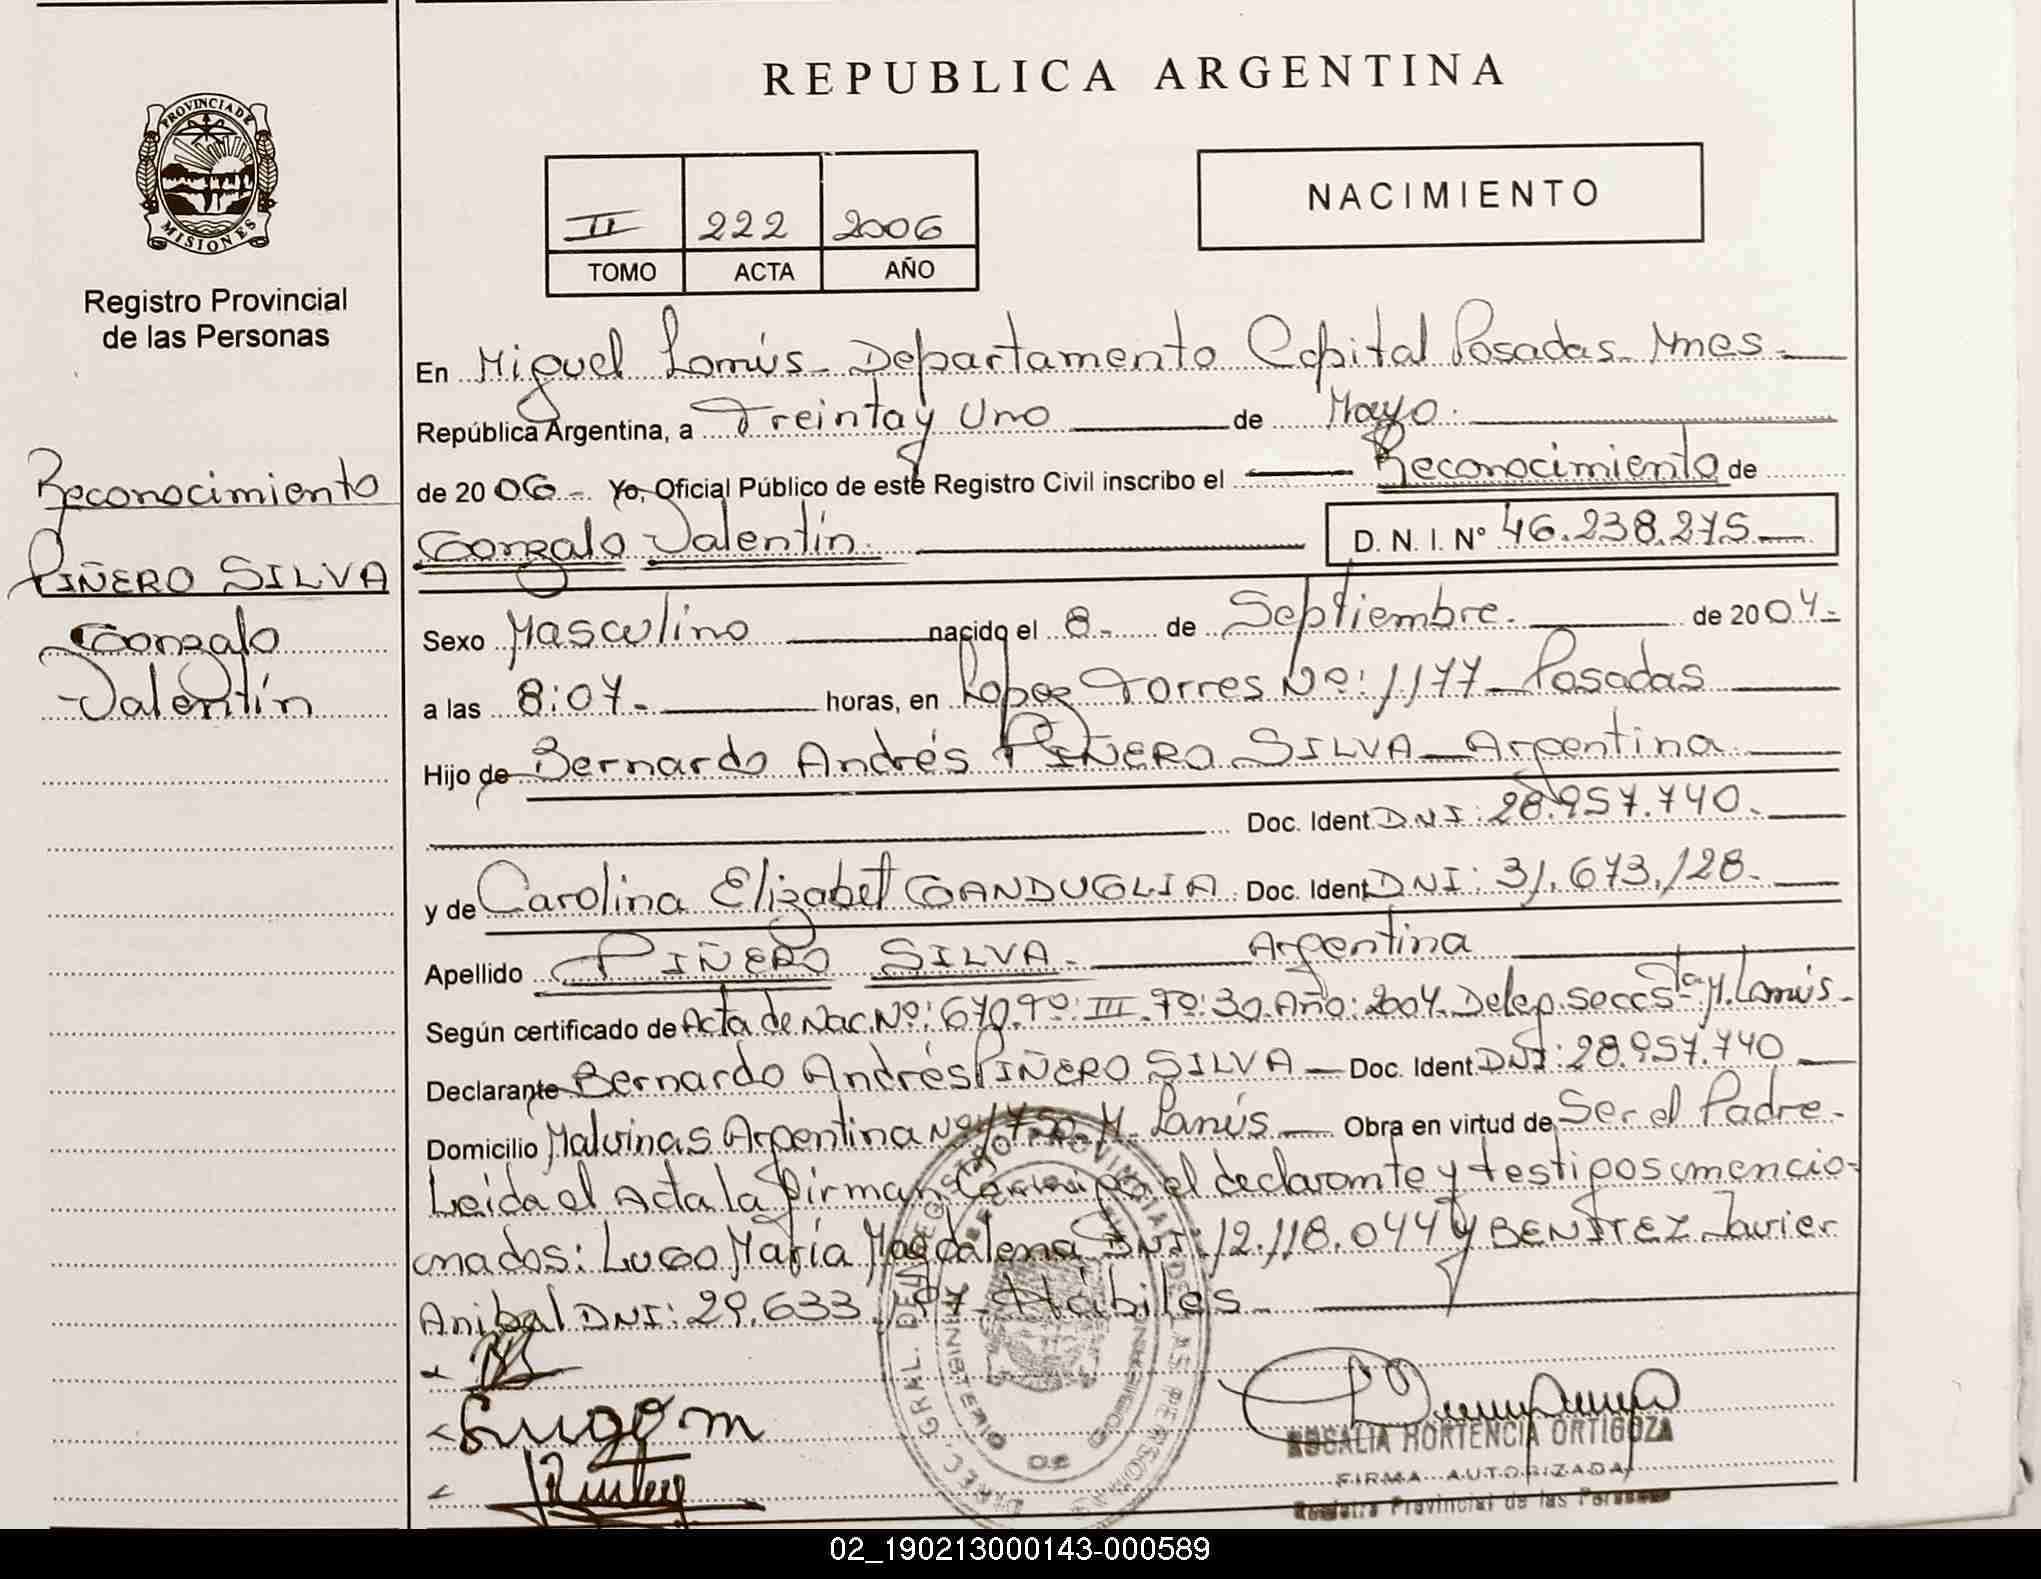 REPUBLICA ARGENTINA
PROVINCIA DE
MISIONES
Registro Provincial
de las Personas
II 222 2006
TOMO ACTA AÑO
NACIMIENTO
Reconocimiento
PIÑERO SILVA
Gonzalo
Valentín
En Miguel Lanús - Departamento Capital Posadas - Mnes -
República Argentina, a Treinta y Uno de Mayo.
de 20 06 - Yo, Oficial Público de este Registro Civil inscribo el Reconocimiento de
Gonzalo Valentín. D. N. I. Nº 46.238.275
Sexo Masculino nacido el 8 - de Septiembre. de 20 04 -
a las 8:07 - horas, en Lopez Torres Nº: 1177 - Posadas
Hijo de Bernardo Andrés PIÑERO SILVA - Argentina
Doc. Ident DNI: 28.957.740.
y de Carolina Elizabet GANDUGLIA Doc. Ident DNI: 31.673.128.
Apellido PIÑERO SILVA - Argentina
Según certificado de Acta de Nac. Nº: 670. Tº: III. Fº: 30. Año: 2004. Deleg. Secc. 5ta. M. Lanús -
Declarante Bernardo Andrés PIÑERO SILVA - Doc. Ident DNI: 28.957.740
Domicilio Malvinas Argentina Nº 1750 - M. Lanús - Obra en virtud de Ser el Padre -
Leída el Acta la firman conmigo el declarante y testigos mencio-
nados: LUGO María Magdalena DNI: 12.118.044 y BENITEZ Javier
Anibal DNI: 29.633.197 - Hábiles -
Lugo m
DIREC. GRAL. DEL REGISTRO PROVINCIAL DE LAS PERSONAS
MINISTERIO DE GOBIERNO
ROSALIA HORTENCIA ORTIGOZA
FIRMA AUTORIZADA
Registro Provincial de las Personas
02_190213000143-000589